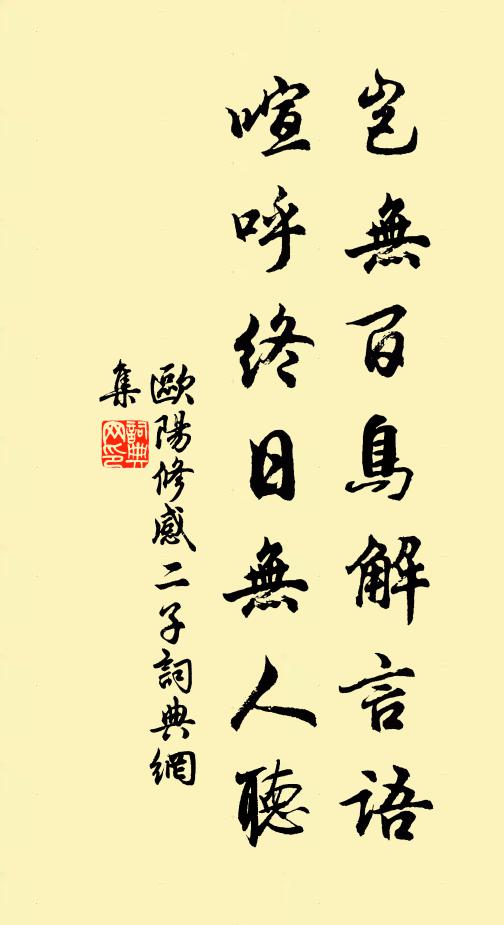 豈無百鳥解言語
喧呼終日無人聽
歐陽修感二子詞典網
集
詞典
网印